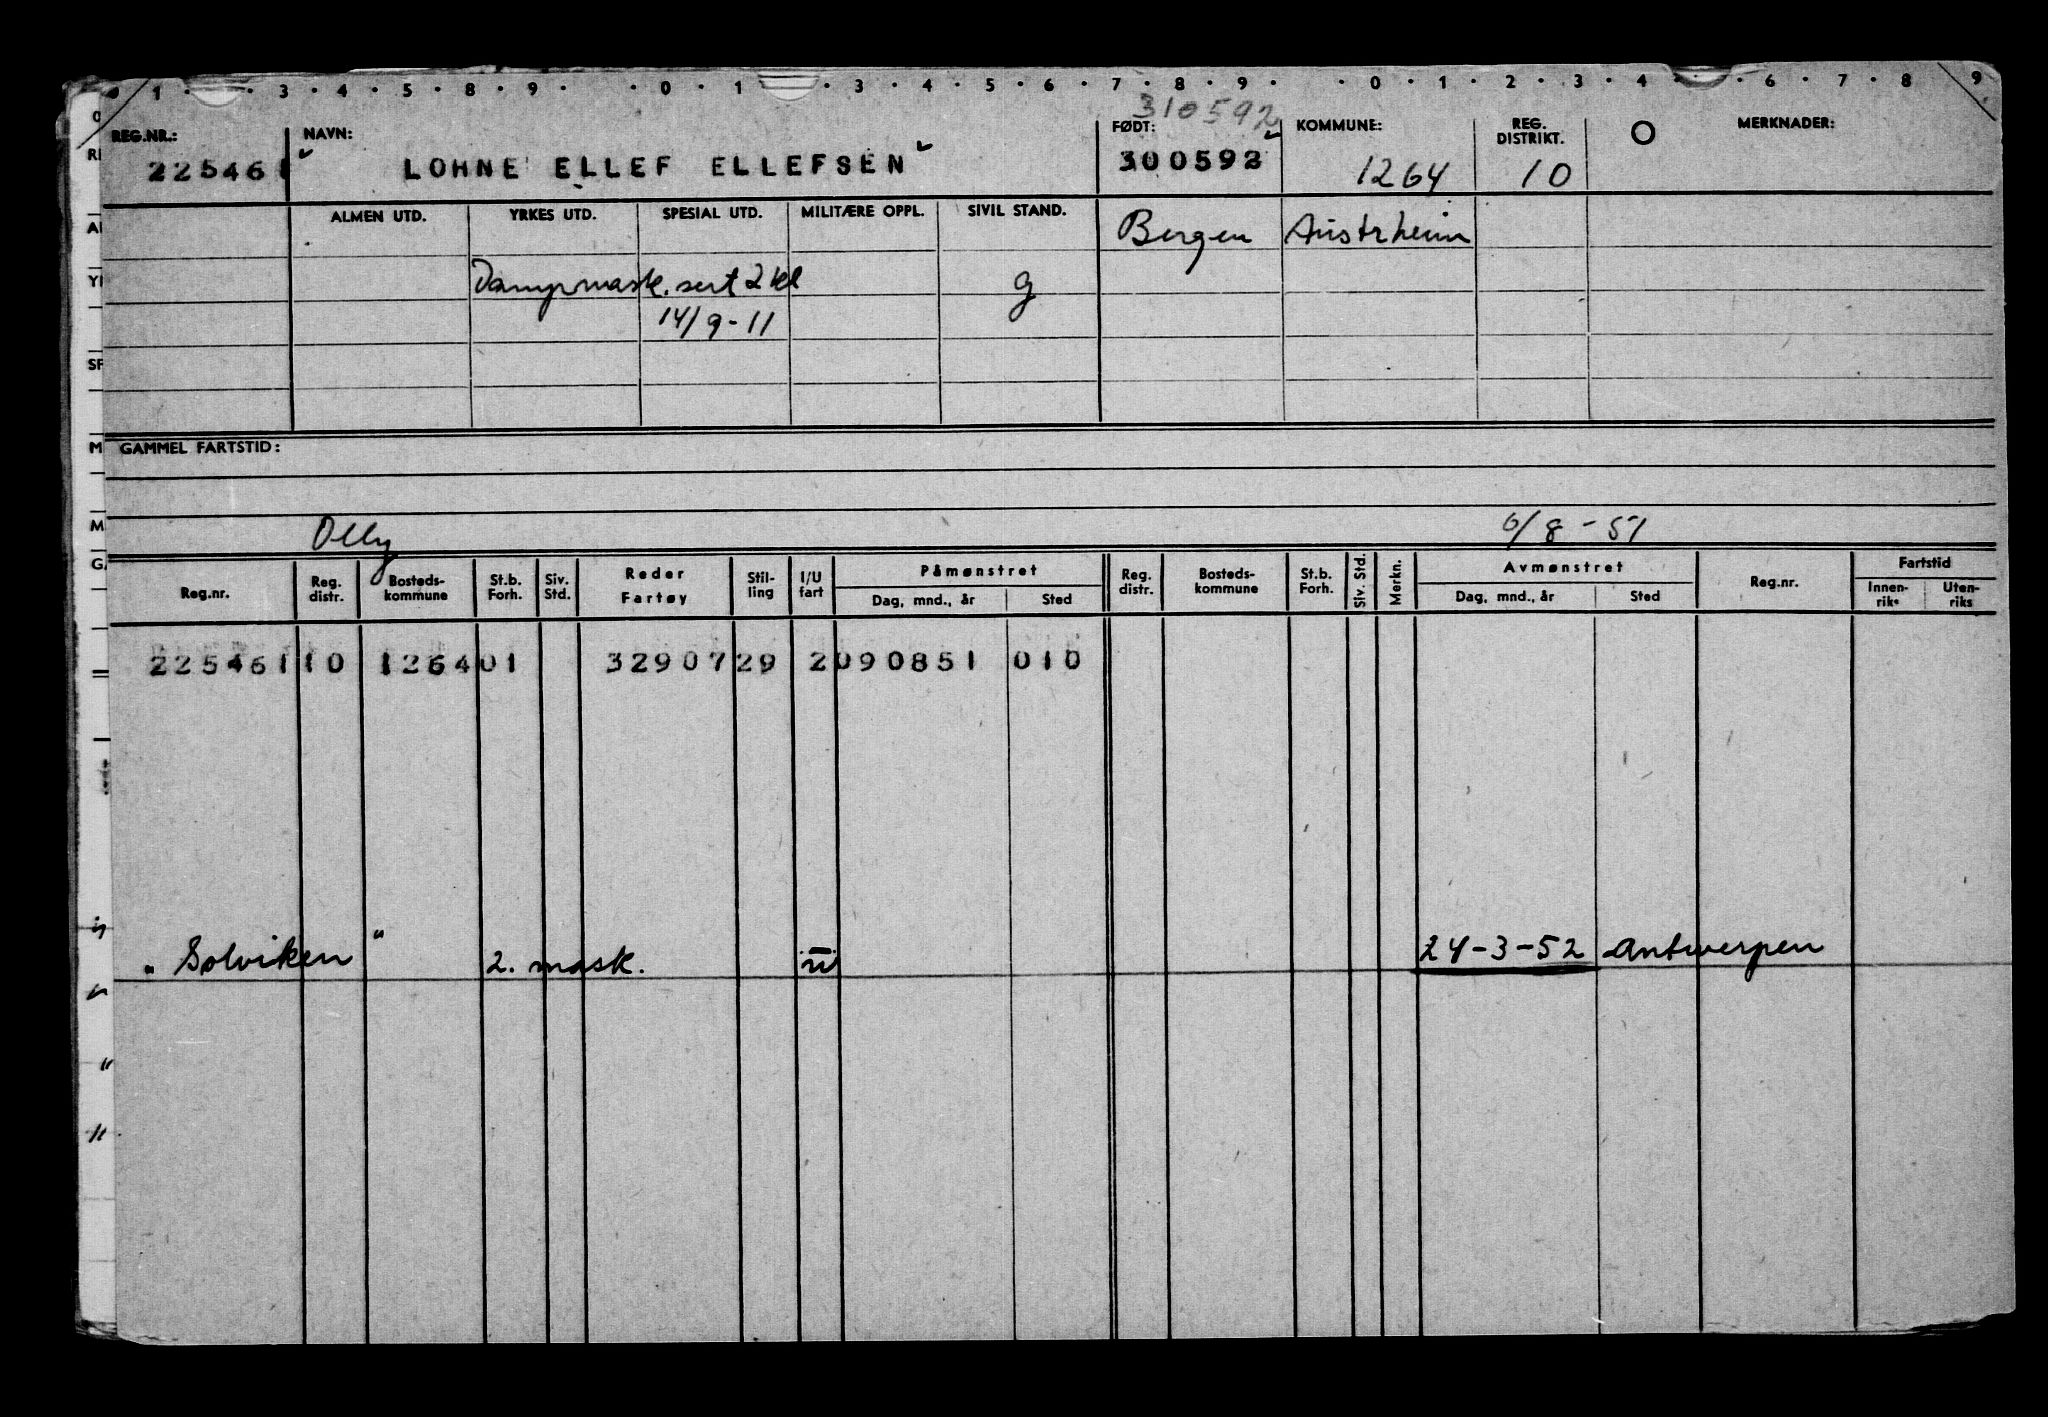 1 · · 3 · 4 · 5 · 8 · 9 · · 0 · 1 · 3 · 4 · 5 · 6 · 7 · 8 · 9 · · 0 · 1 · 2 · 3 · 4 · · 6 · 7 · 8 9
310592
REG.NR.: NAVN: FØDT: KOMMUNE: REG. DISTRIKT. MERKNADER:
225461 LOHNE ELLEF ELLEFSEN 300592 1264 10
ALMEN UTD. YRKES UTD. SPESIAL UTD. MILITÆRE OPPL. SIVIL STAND. Bergen Austrheim
Dampmask. sert 2 kl g
14/9-11
GAMMEL FARTSTID:
Olly 6/8-51
Reg.nr. Reg. distr. Bosteds-kommune St.b. Forh. Siv. Std. Reder Fartøy Stil-ling I/U fart Påmønstret Dag, mnd., år Sted Reg. distr. Bosteds-kommune St.b. Forh. Siv. Std. Merkn. Avmønstret Dag, mnd., år Sted Reg.nr. Fartstid Innen-riks Uten-riks
225461 10 1264 01 32907 29 2 090851 010
"Solviken" 2. mask. u 24-3-52 Antwerpen